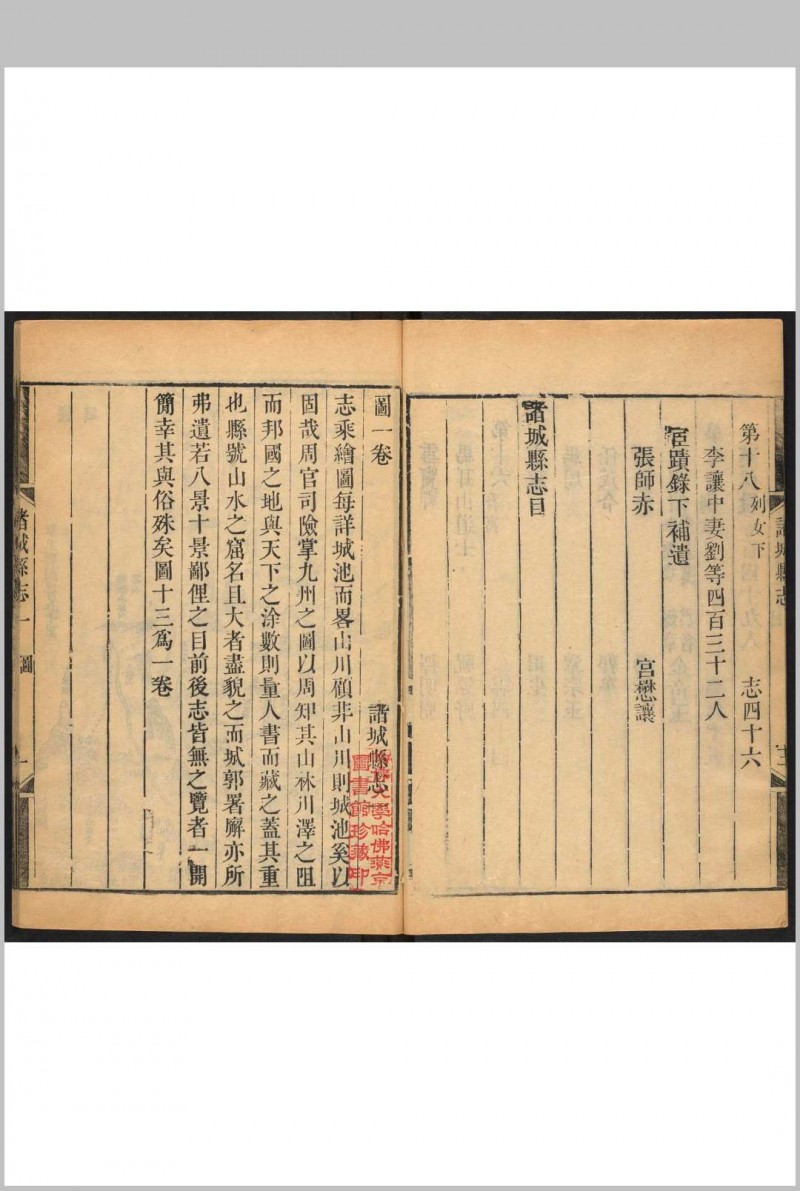 第十八列女下 志四十六
李讓中妻劉等四百三十二人
宦蹟錄下補遺
張師赤 宮懋讓
諸城縣志目
諸城縣志
圖一卷 諸城縣志一
志乘繪圖每詳城池而畧山川顧非山川則城池奚以
固哉周官司險掌九州之圖以周知其山林川澤之阻
而邦國之地與天下之涂數則量人書而藏之蓋其重
也縣號山水之窟名且大者盡貌之而城郭署廨亦所
弗遺若八景十景鄙俚之目前後志皆無之覽者一開
簡幸其與俗殊矣圖十三爲一卷
大學哈佛燕京
圖書館珍藏印
諸城縣志一 圖 一